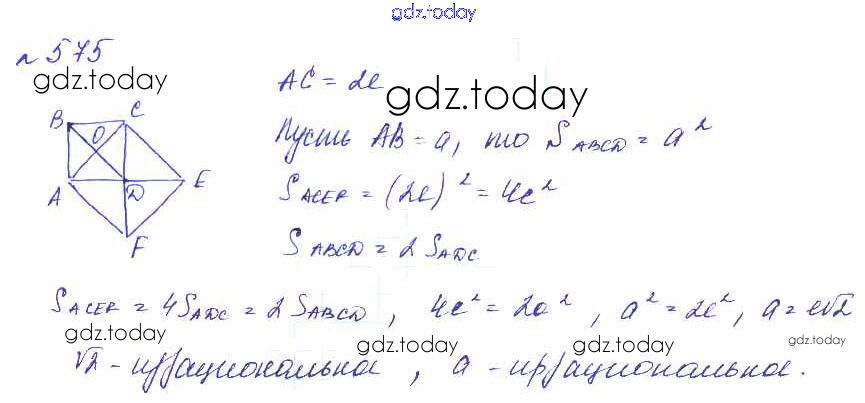 gdz.today
№575
gdz.today
AC = 2c
gdz.today
B C
O
A D E
F
Пусть AB = a, то S ABCD = a²
S ACEF = (2c)² = 4c²
S ABCD = 2 S ADC
S ACEF = 4S ADC = 2 S ABCD, 4c² = 2a², a² = 2c², a = c√2
gdz.today gdz.today gdz.today gdz.today
√2 - иррациональное, a - иррациональное.